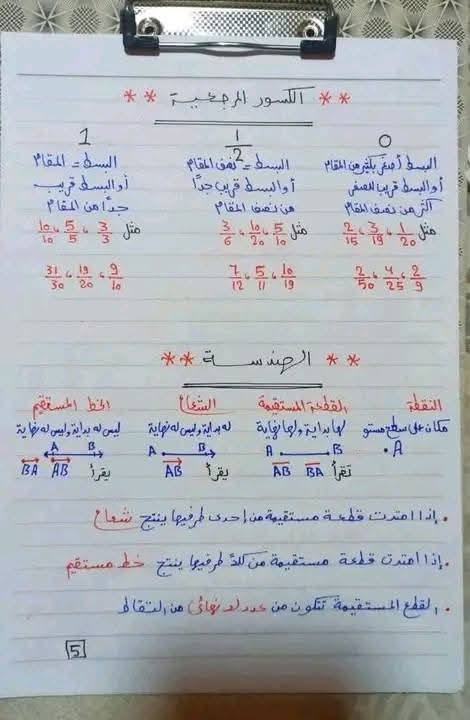 ** الكسور المرجعية **
0
البسط أصغر بكثير من المقام
أو البسط قريب للصفر
أكثر من نصف المقام
مثل 1/20 ، 3/19 ، 2/15
2/9 ، 4/25 ، 2/50
1/2
البسط = نصف المقام
أو البسط قريب جدًا
من نصف المقام
مثل 5/10 ، 10/20 ، 3/6
10/19 ، 5/11 ، 7/12
1
البسط = المقام
أو البسط قريب
جدًا من المقام
مثل 3/3 ، 5/5 ، 10/10
9/10 ، 19/20 ، 31/30
** الهندسة **
النقطة
مكان على سطح مستو
A
القطعة المستقيمة
لها بداية ولها نهاية
A B
تقرأ BA AB
الشعاع
له بداية وليس له نهاية
A B
يقرأ AB
الخط المستقيم
ليس له بداية وليس له نهاية
A B
يقرأ AB BA
. إذا امتدت قطعة مستقيمة من إحدى طرفيها ينتج شعاع
. إذا امتدت قطعة مستقيمة من كلا طرفيها ينتج خط مستقيم
. القطع المستقيمة تتكون من عدد لا نهائى من النقاط
5